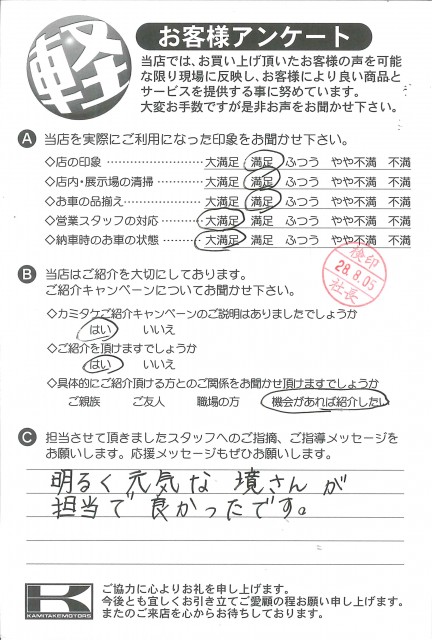 軽
お客様アンケート
当店では、お買い上げ頂いたお客様の声を可能
な限り現場に反映し、お客様により良い商品と
サービスを提供する事に努めています。
大変お手数ですが是非お声をお聞かせ下さい。
A 当店を実際にご利用になった印象をお聞かせ下さい。
◇店の印象 ………………… 大満足 満足 ふつう やや不満 不満
◇店内・展示場の清掃 ………… 大満足 満足 ふつう やや不満 不満
◇お車の品揃え ……………… 大満足 満足 ふつう やや不満 不満
◇営業スタッフの対応 ………… 大満足 満足 ふつう やや不満 不満
◇納車時のお車の状態 ………… 大満足 満足 ふつう やや不満 不満
検印
28.8.05
社長
B 当店はご紹介を大切にしてあります。
ご紹介キャンペーンについてお聞かせ下さい。
◇カミタケご紹介キャンペーンのご説明はありましたでしょうか
はい いいえ
◇ご紹介を頂けますでしょうか
はい いいえ
◇具体的にご紹介頂ける方とのご関係をお聞かせ頂けますでしょうか
ご親族 ご友人 職場の方 機会があれば紹介したい
C 担当させて頂きましたスタッフへのご指摘、ご指導メッセージを
お願いします。応援メッセージもぜひお願いします。
明るく元気な境さんが
担当で良かったです。
K
KAMITAKEMOTORS
ご協力に心よりお礼を申し上げます。
今後とも宜しくお引き立てご愛顧の程お願い申し上げます。
またのご来店を心からお待ちしております。